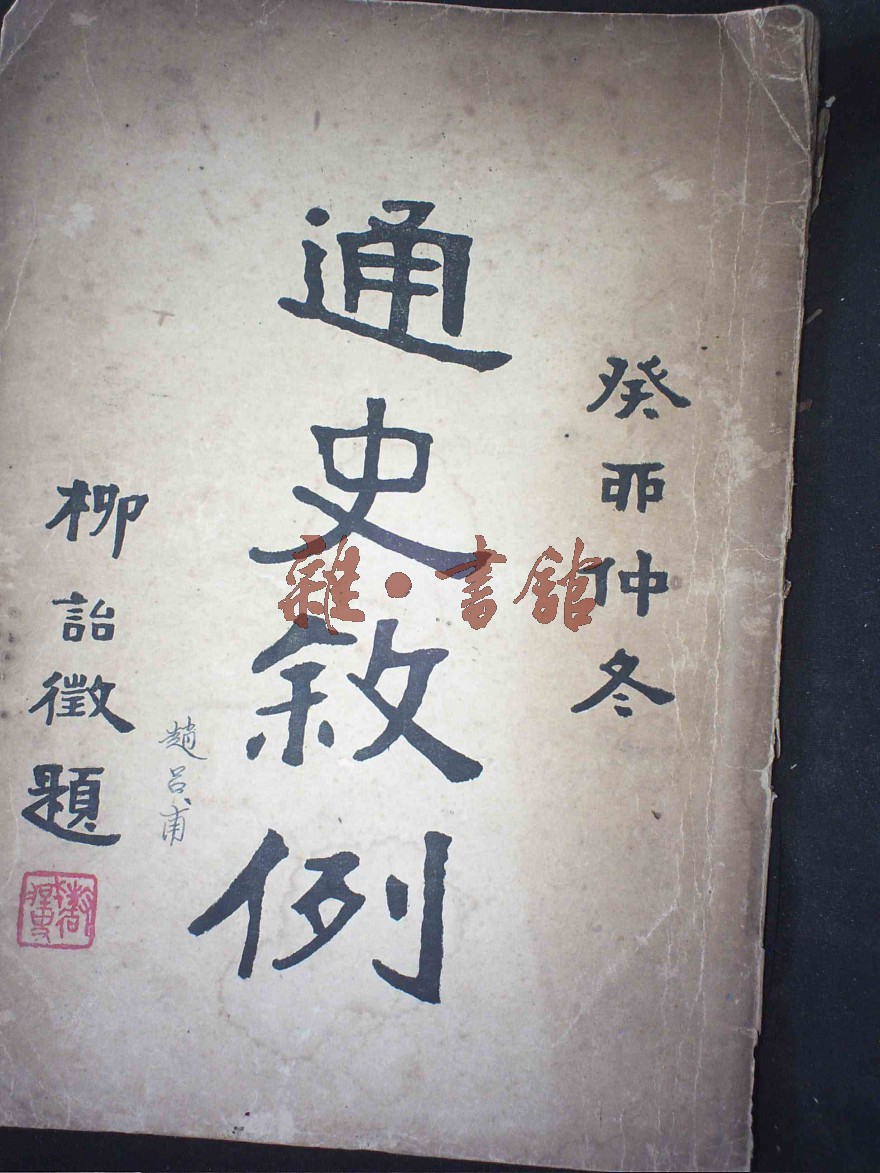 癸丣仲冬
通史敘例
趙呂甫
柳詒徵題
雜·書館